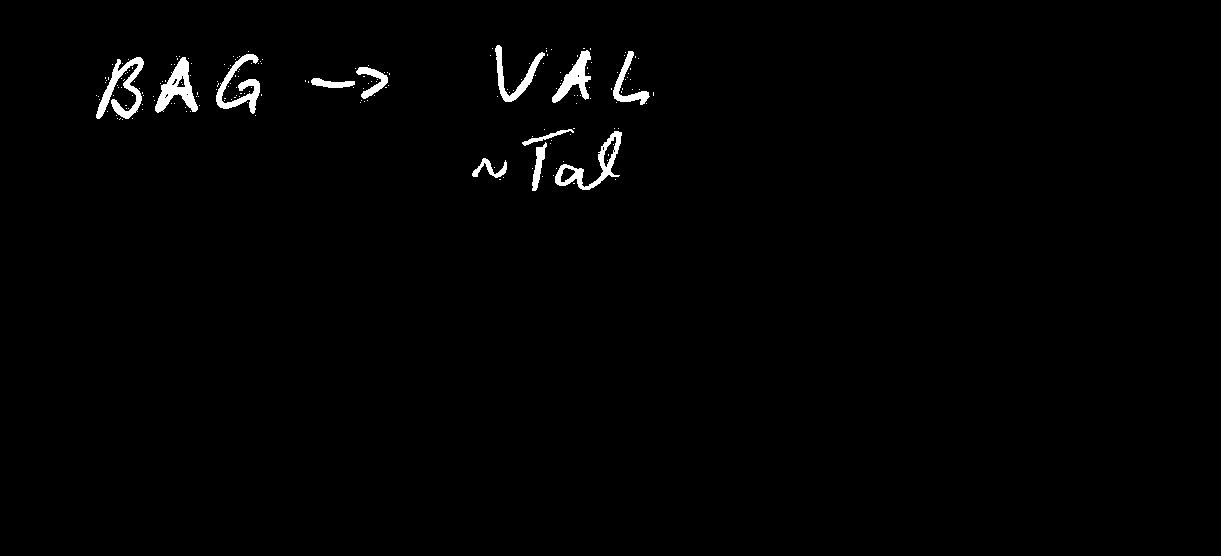 BAG -> VAL
~ Tal